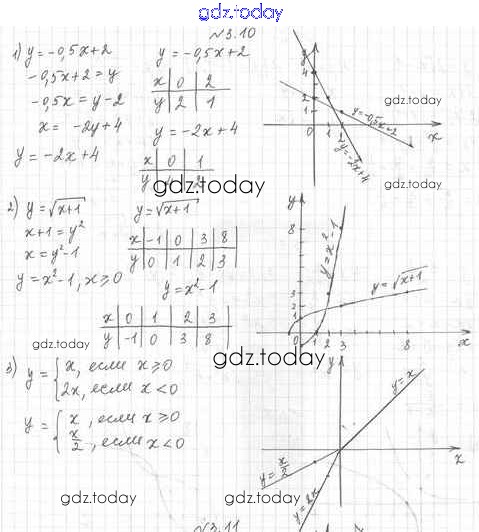 gdz.today
№3.10
1) y = -0,5x+2
-0,5x+2 = y
-0,5x = y-2
x = -2y+4
y = -2x+4
y = -0,5x+2
x | 0 | 2
y | 2 | 1
y = -2x+4
x | 0 | 1
y | 4 | 2
y
4
2
0
1
2
x
y=-0,5x+2
y=-2x+4
gdz.today
gdz.today
gdz.today
2) y = √x+1
x+1 = y²
x = y²-1
y = x²-1, x ≥ 0
y = √x+1
x | -1 | 0 | 3 | 8
y | 0 | 1 | 2 | 3
y = x²-1
x | 0 | 1 | 2 | 3
y | -1 | 0 | 3 | 8
y
8
3
2
1
0
1
2
3
8
x
y = x²-1
y = √x+1
gdz.today
3) y = { x, если x ≥ 0
2x, если x < 0
y = { x, если x ≥ 0
x/2, если x < 0
y
x
y=x
y=x/2
y=2x
gdz.today
gdz.today
gdz.today
№3.11